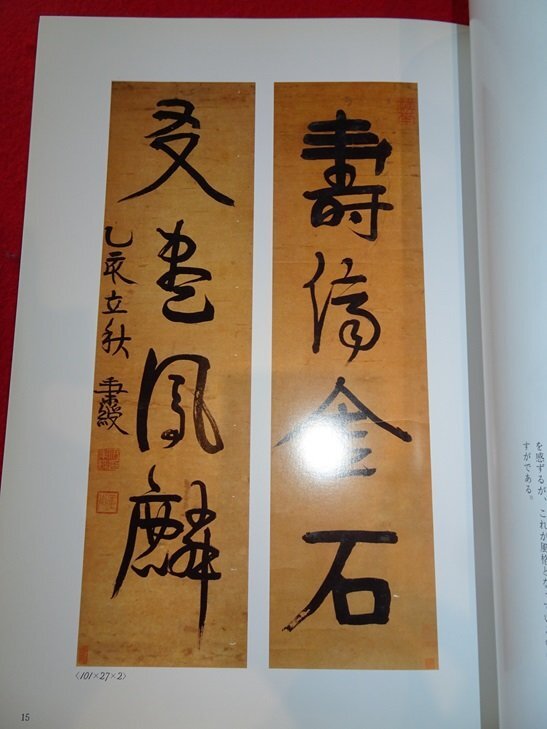 壽 金石
友盡鳳麟
乙亥立秋 秉綬
〈101×27×2〉
15
を感ずるが、これが風格となってい
すがである。